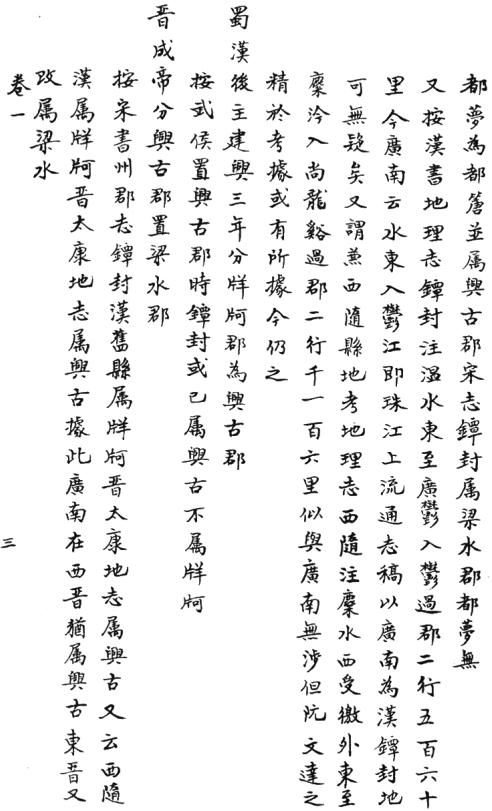 都夢為都篖並属興古郡宋志鐔封属梁水郡都夢無
又按漢書地理志鐔封注溫水東至廣鬱入鬱過郡二行五百六十
里今廣南云水東入鬱江即珠江上流通志稿以廣南為漢鐔封地
可無疑矣又謂兼西隨縣地考地理志西隨注麋水西受徼外東至
麋泠入尚龍谿過郡二行千一百六里似與廣南無涉但阮文達之
精於考據或有所據今仍之
蜀漢後主建興三年分牂牁郡為興古郡
按武侯置興古郡時鐔封或已属興古不属牂牁
晋成帝分興古郡置梁水郡
按宋書州郡志鐔封漢舊縣属牂牁晋太康地志属興古又云西隨
漢属牂牁晋太康地志属興古據此廣南在西晋猶属興古東晋又
改属梁水
卷一
三